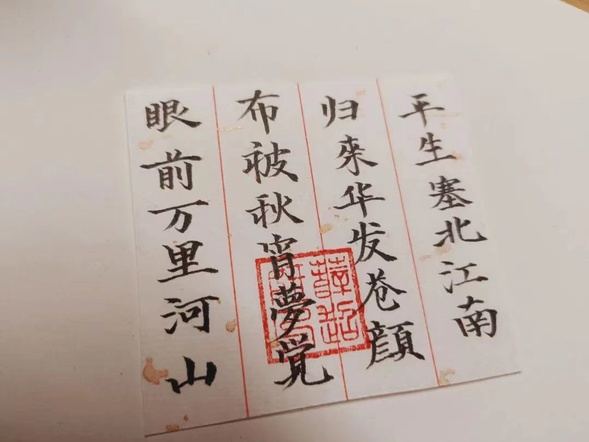 平生塞北江南
归来华发苍顔
布被秋宵夢觉
眼前万里河山